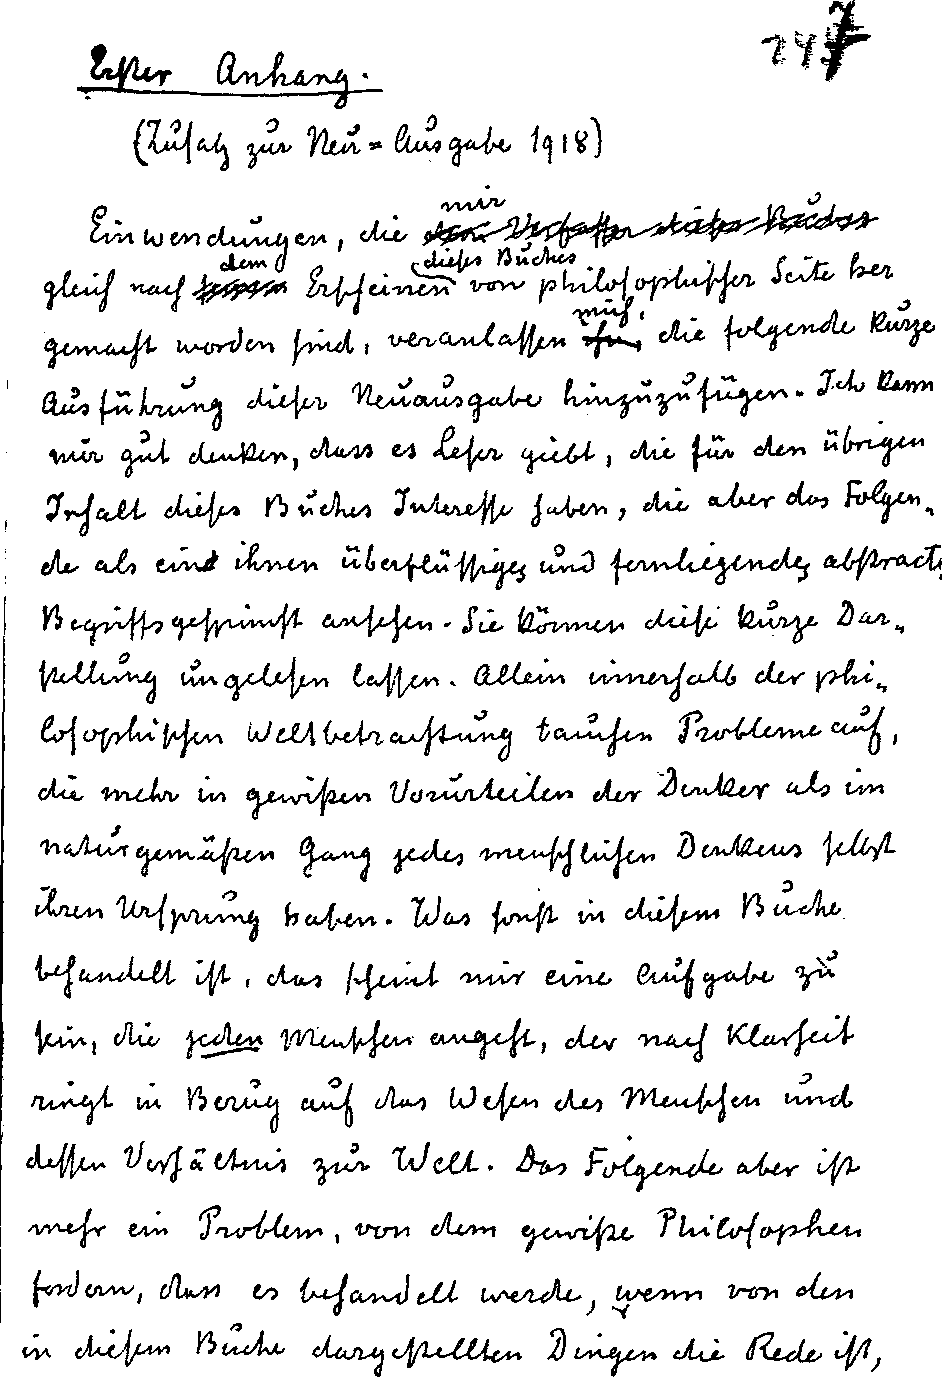 247
Erster Anhang.
(Zusatz zur Neu=Ausgabe 1918)
mir
Einwendungen, die dem Verfasser dieses Buches
dem dieses Buches
gleich nach Erscheinen von philosophischer Seite her
mich,
gemacht worden sind, veranlassen ihn, die folgende kurze
Ausführung dieser Neuausgabe hinzuzufügen. Ich kann
mir gut denken, dass es Leser giebt, die für den übrigen
Inhalt dieses Buches Interesse haben, die aber das Folgen„
de als ein ihnen überflüssiges und fernliegendes abstractes
Begriffsgespinnst ansehen. Sie können diese kurze Dar„
stellung ungelesen lassen. Allein innerhalb der phi„
losophischen Weltbetrachtung tauchen Probleme auf,
die mehr in gewißen Vorurteilen der Denker als im
naturgemäßen Gang jedes menschlichen Denkens selbst
ihren Ursprung haben. Was sonst in diesem Buche
behandelt ist, das scheint mir eine Aufgabe zu
sein, die jeden Menschen angeht, der nach Klarheit
ringt in Bezug auf das Wesen des Menschen und
dessen Verhältnis zur Welt. Das Folgende aber ist
mehr ein Problem, von dem gewiße Philosophen
fordern, dass es behandelt werde, wenn von den
in diesem Buche dargestellten Dingen die Rede ist,